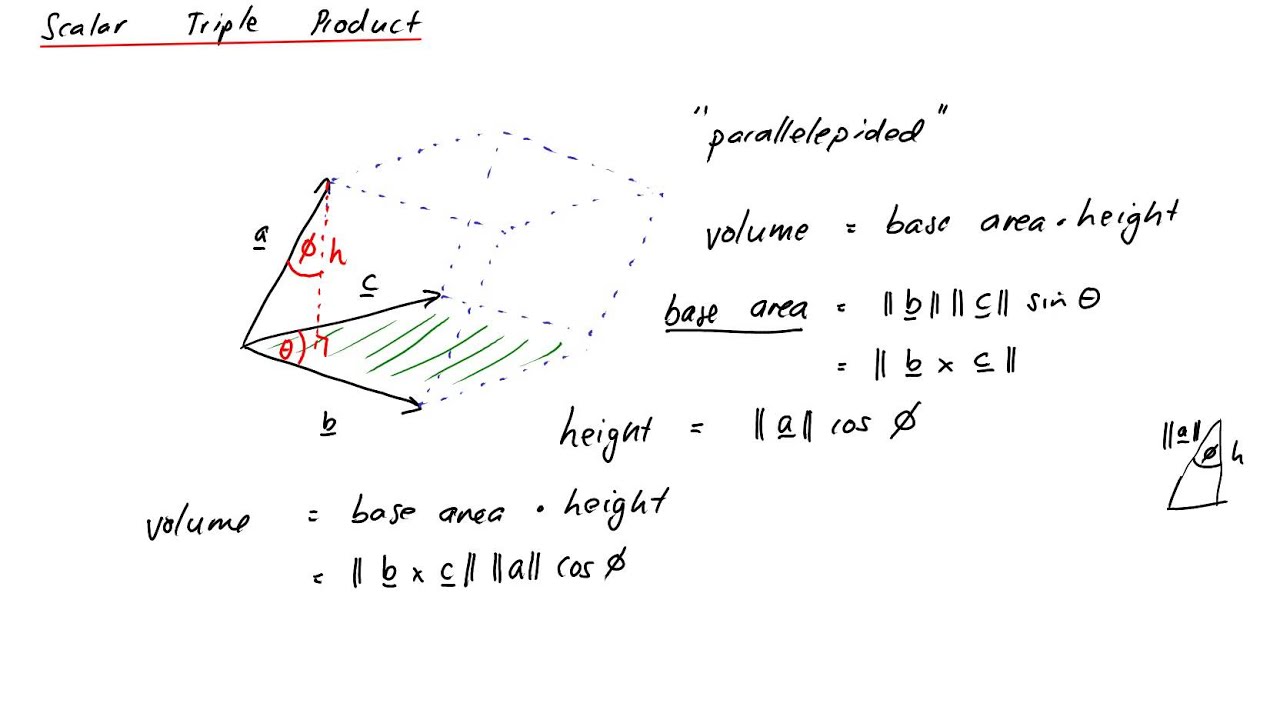 Scalar Triple Product
"parallelepided"
volume = base area · height
base area = ‖b‖‖c‖ sin θ
= ‖b × c‖
height = ‖a‖ cos ϕ
volume = base area · height
= ‖b × c‖ ‖a‖ cos ϕ
a
ϕ h
c
θ
b
‖a‖ ϕ h